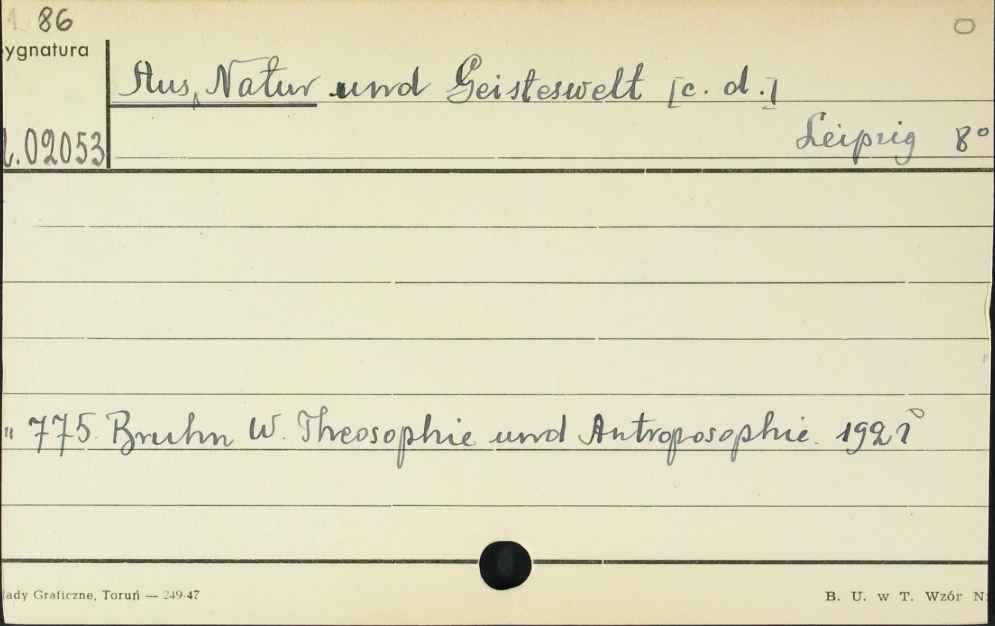 86
ygnatura
Aus Natur und Geisteswelt [c. d.]
.02053
Leipzig 8°
" 775. Bruhn W. Theosophie und Antroposophie. 1921
łady Graficzne, Toruń — 249-47
B. U. w T. Wzór N